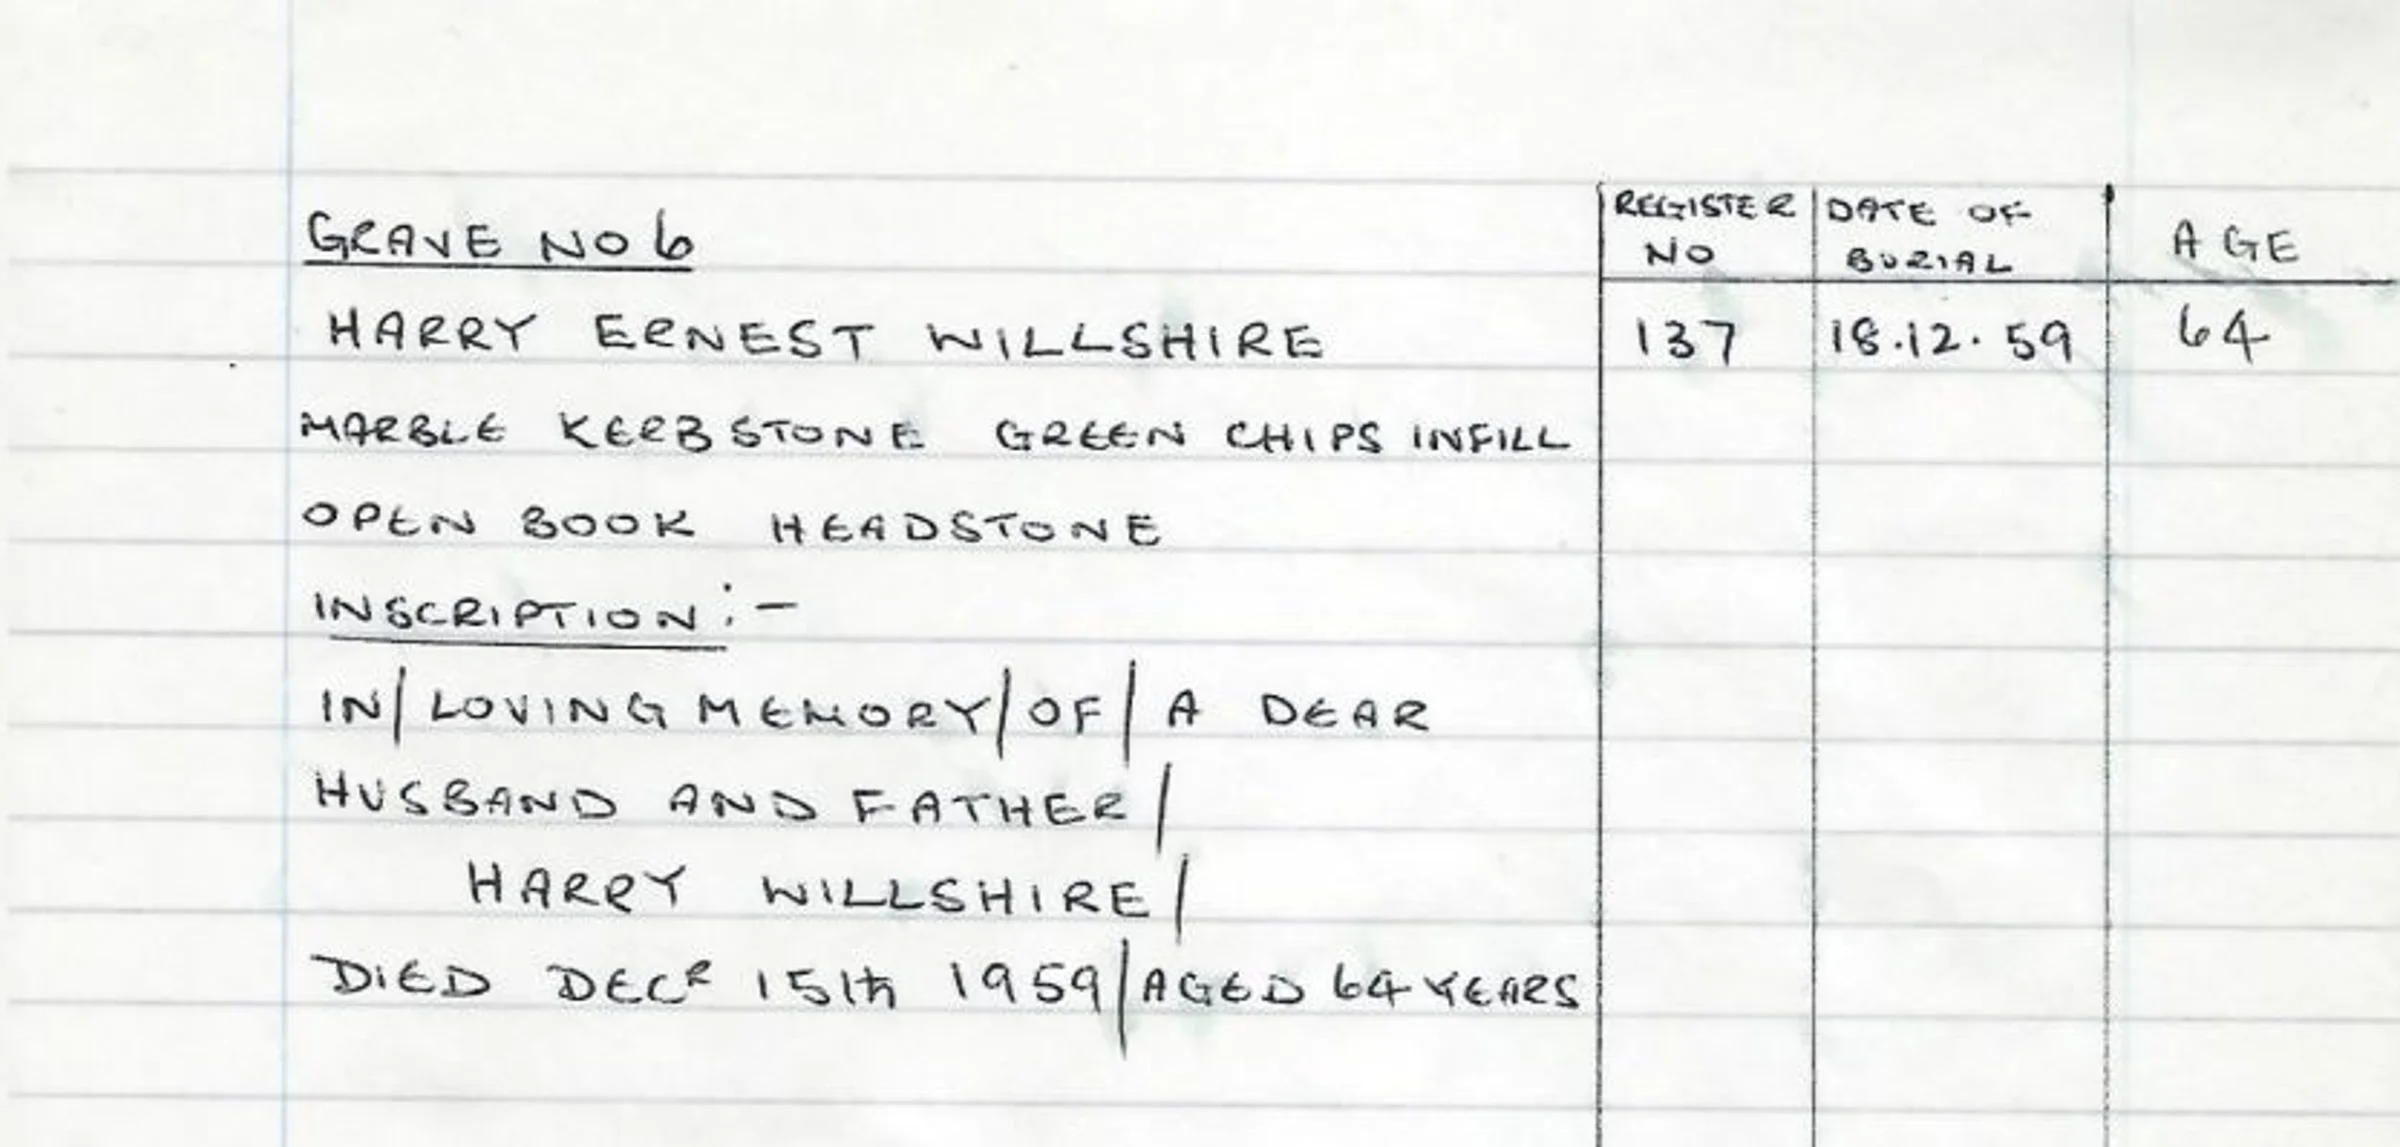 GRAVE NO 6
REGISTER NO
DATE OF BURIAL
AGE
HARRY ERNEST WILLSHIRE 137 18.12.59 64
MARBLE KERBSTONE GREEN CHIPS INFILL
OPEN BOOK HEADSTONE
INSCRIPTION:-
IN/LOVING MEMORY/OF/A DEAR
HUSBAND AND FATHER/
HARRY WILLSHIRE/
DIED DECR 15th 1959/AGED 64 YEARS